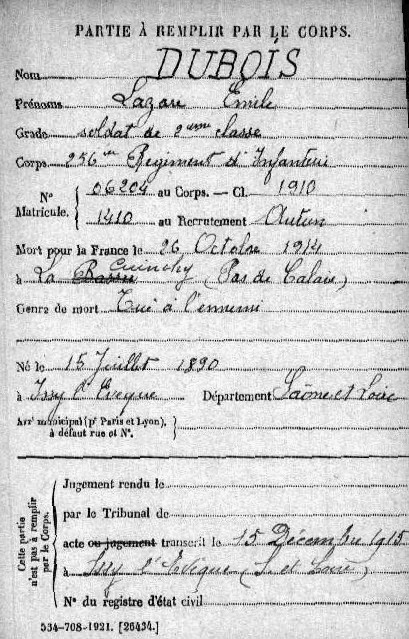 PARTIE À REMPLIR PAR LE CORPS.
Nom DUBOIS
Prénoms Lazare Emile
Grade soldat de 2eme classe
Corps 256me Régiment d'Infanterie
N° Matricule. 06204 au Corps. — Cl. 1910
1410 au Recrutement Autun
Mort pour la France le 26 Octobre 1914
à La Bassée Cuinchy (Pas de Calais)
Genre de mort Tué à l'ennemi
Né le 15 Juillet 1890
à Issy l'Eveque Département Saône et Loire
Arrt municipal (pr Paris et Lyon), à défaut rue et N°.
Cette partie n'est pas à remplir par le Corps.
Jugement rendu le
par le Tribunal de
acte ou jugement transcrit le 15 Décembre 1915
à Issy l'Evêque (S. et Loire)
N° du registre d'état civil
534-708-1921. [26434.]